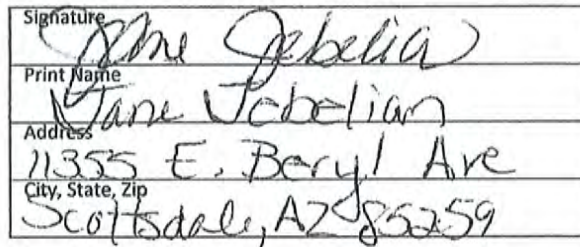 Signature
Jane Jebelian
Print Name
Jane Jebelian
Address
11355 E. Beryl Ave
City, State, Zip
Scottsdale, AZ 85259